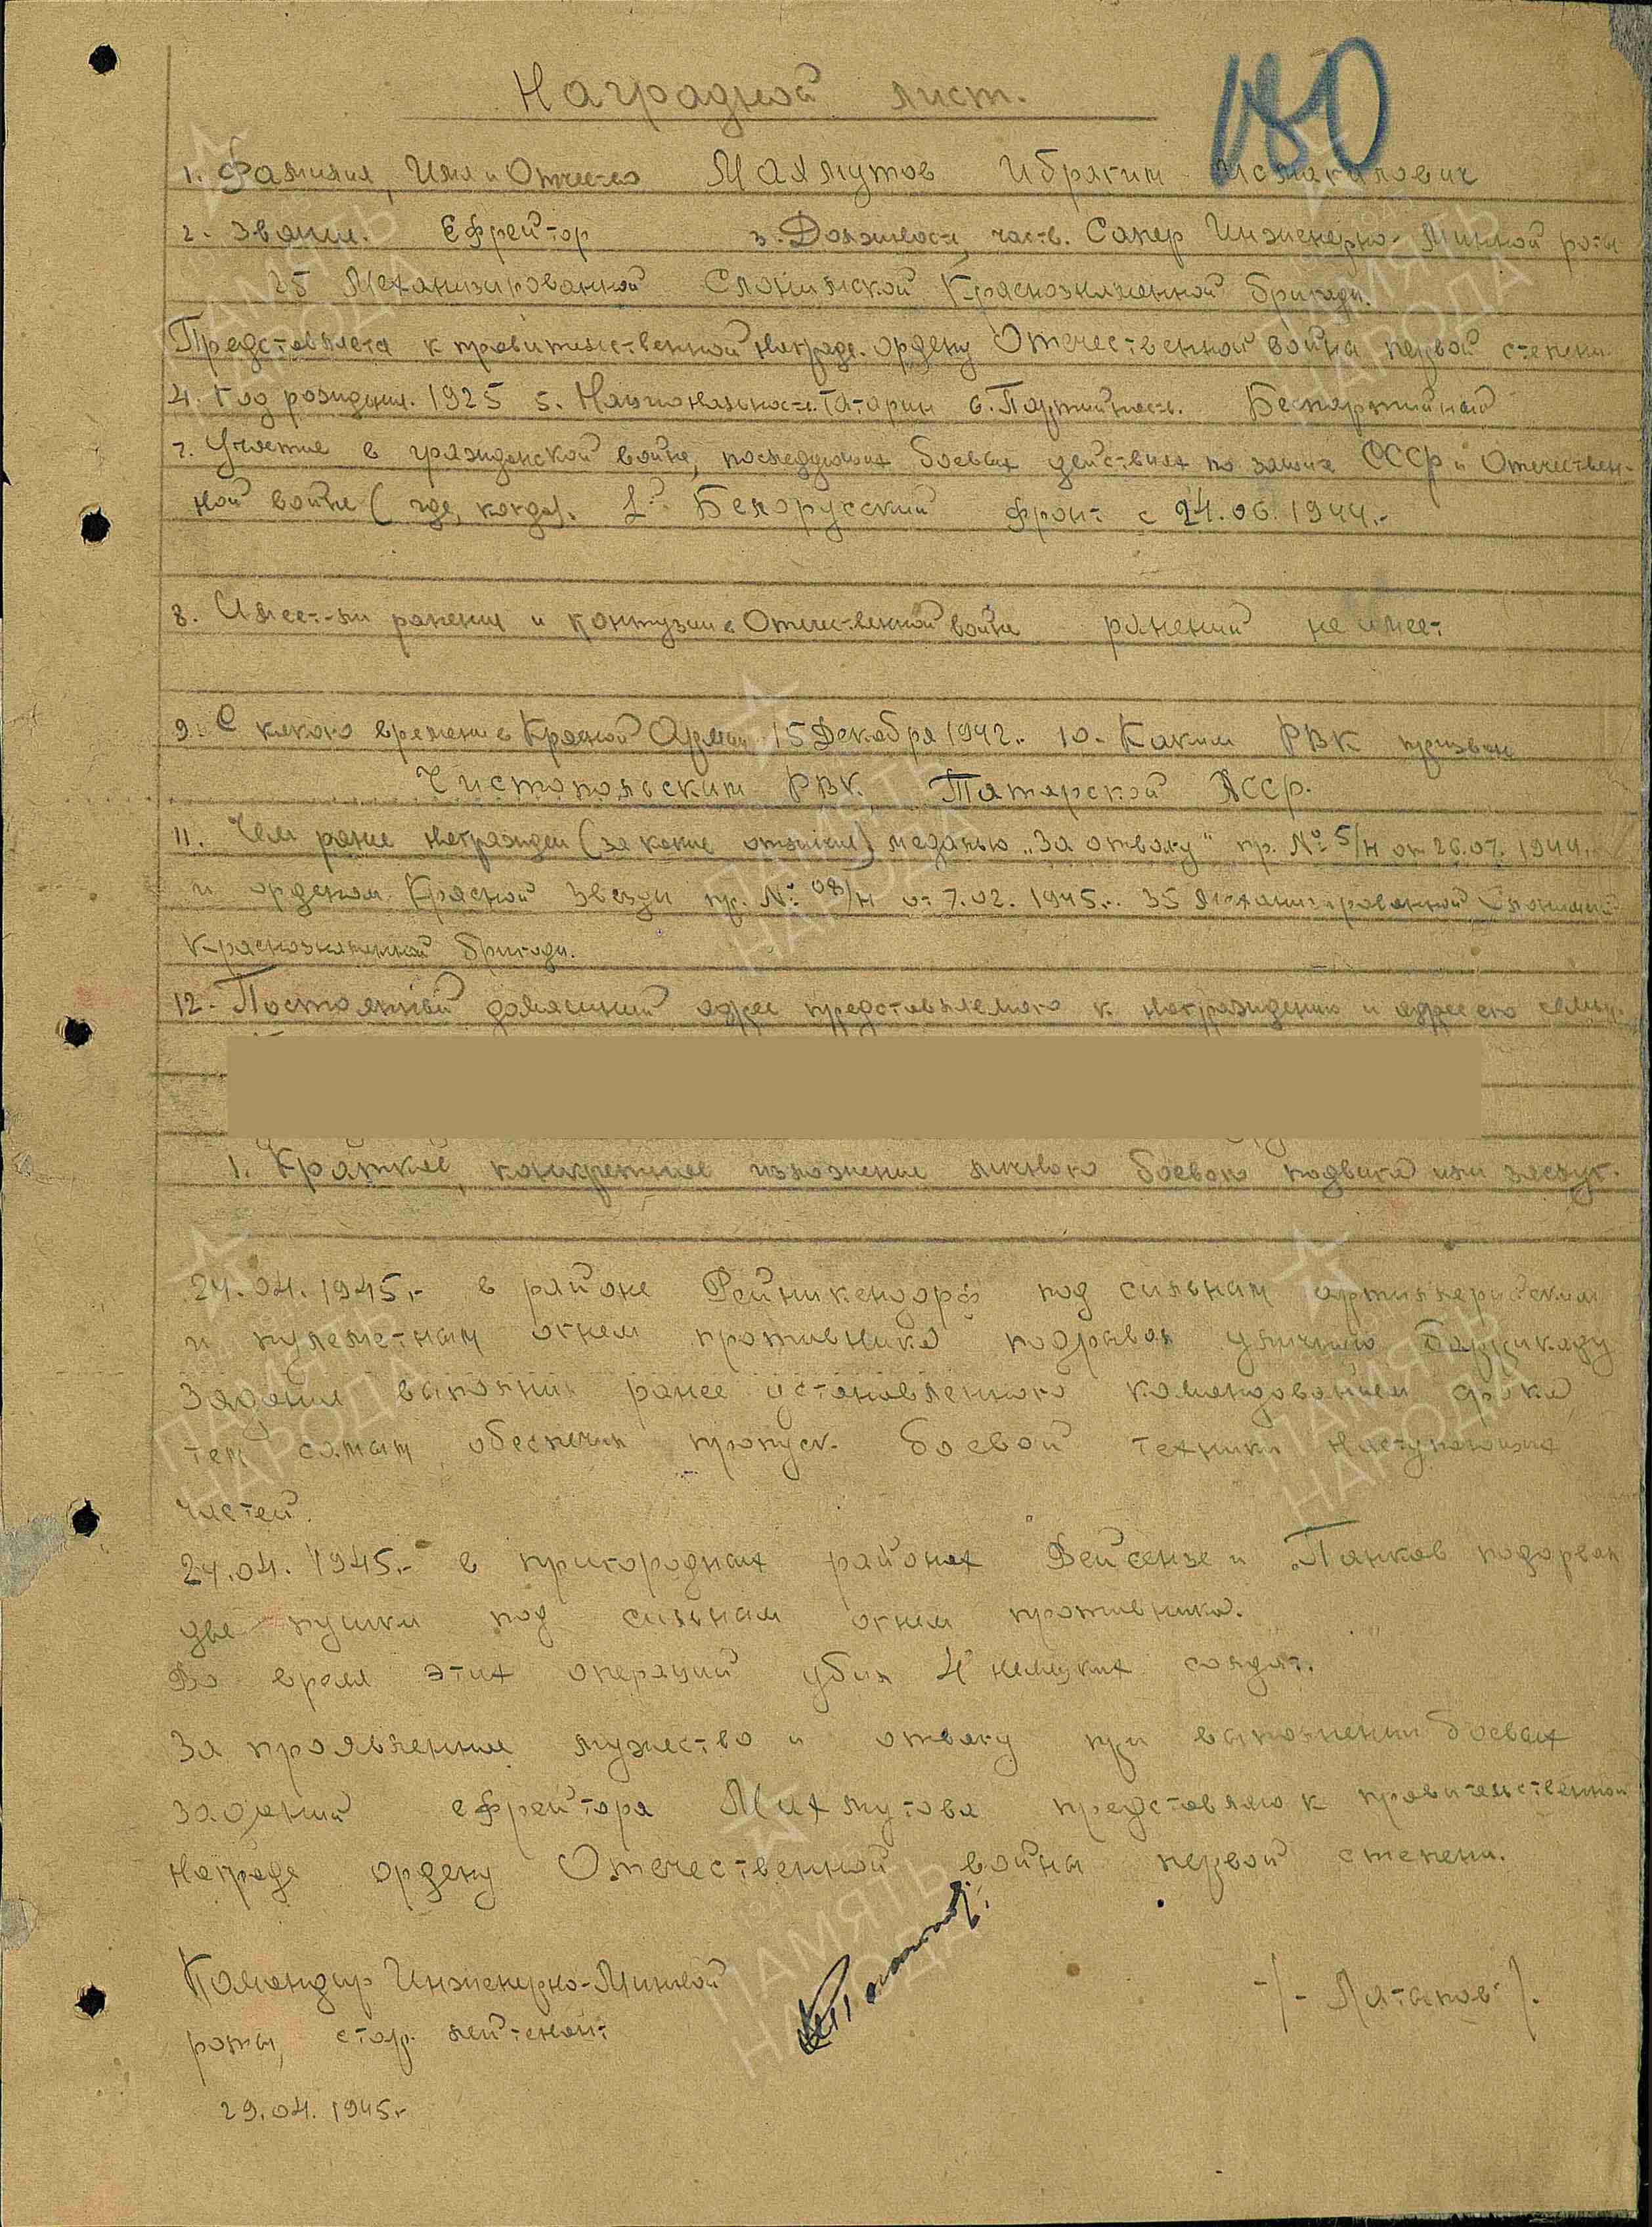 Наградной лист.
180
1. Фамилия, Имя и Отчество Махмутов Ибрагим Исмагилович
2. Звание. Ефрейтор 3. Должность, часть. Сапер Инженерно-Минной роты
Механизированной Слонимской Краснознаменной бригады.
Представляется к правительственной награде. ордену Отечественной войны первой степени
4. Год рождения. 1925 5. Национальность. Татарин 6. Партийность. Беспартийный
7. Участие в гражданской войне, последующих боевых действиях по защите СССР и Отечествен-
ной войне (где, когда). 1й Белорусский фронт с 24.06.1944.-
8. Имеет-ли ранения и контузии в Отечественной войне ранений не имеет
9. С какого времени в Красной Армии 15 Декабря 1942.. 10. Каким РВК призван
Чистопольским РВК, Татарской АССР.
11. Чем ранее награжден (за какие отличия) медалью „За отвагу" пр. № 5/н от 26.07.1944.
и орденом Красной Звезды пр. № 08/н от 7.02.1945.. 35 Механизированной Слонимской
Краснознаменной бригады.
12. Постоянный домашний адрес представляемого к награждению и адрес его семьи.
1. Краткое, конкретное изложение личного боевого подвига или заслуг.
24.04.1945.- в районе Рейникендорф под сильным артиллерийским
и пулеметным огнем противника подрывал уличную баррикаду
Задания выполнил ранее установленного командованием срока,
тем самым обеспечил пропуск боевой техники наступающих
частей.
24.04.1945.- в пригородных районах Вейсензе и Панков подорвал
две пушки под сильным огнем противника.
Во время этих операций убил 4 немецких солдат.
За проявленные мужество и отвагу при выполнении боевых
заданий ефрейтора Махмутова представляю к правительственной
награде ордену Отечественной войны первой степени.
Командир Инженерно-Минной
роты, стар. лейтенант -/- Латыпов -/.
29.04.1945.-
ПАМЯТЬ НАРОДА